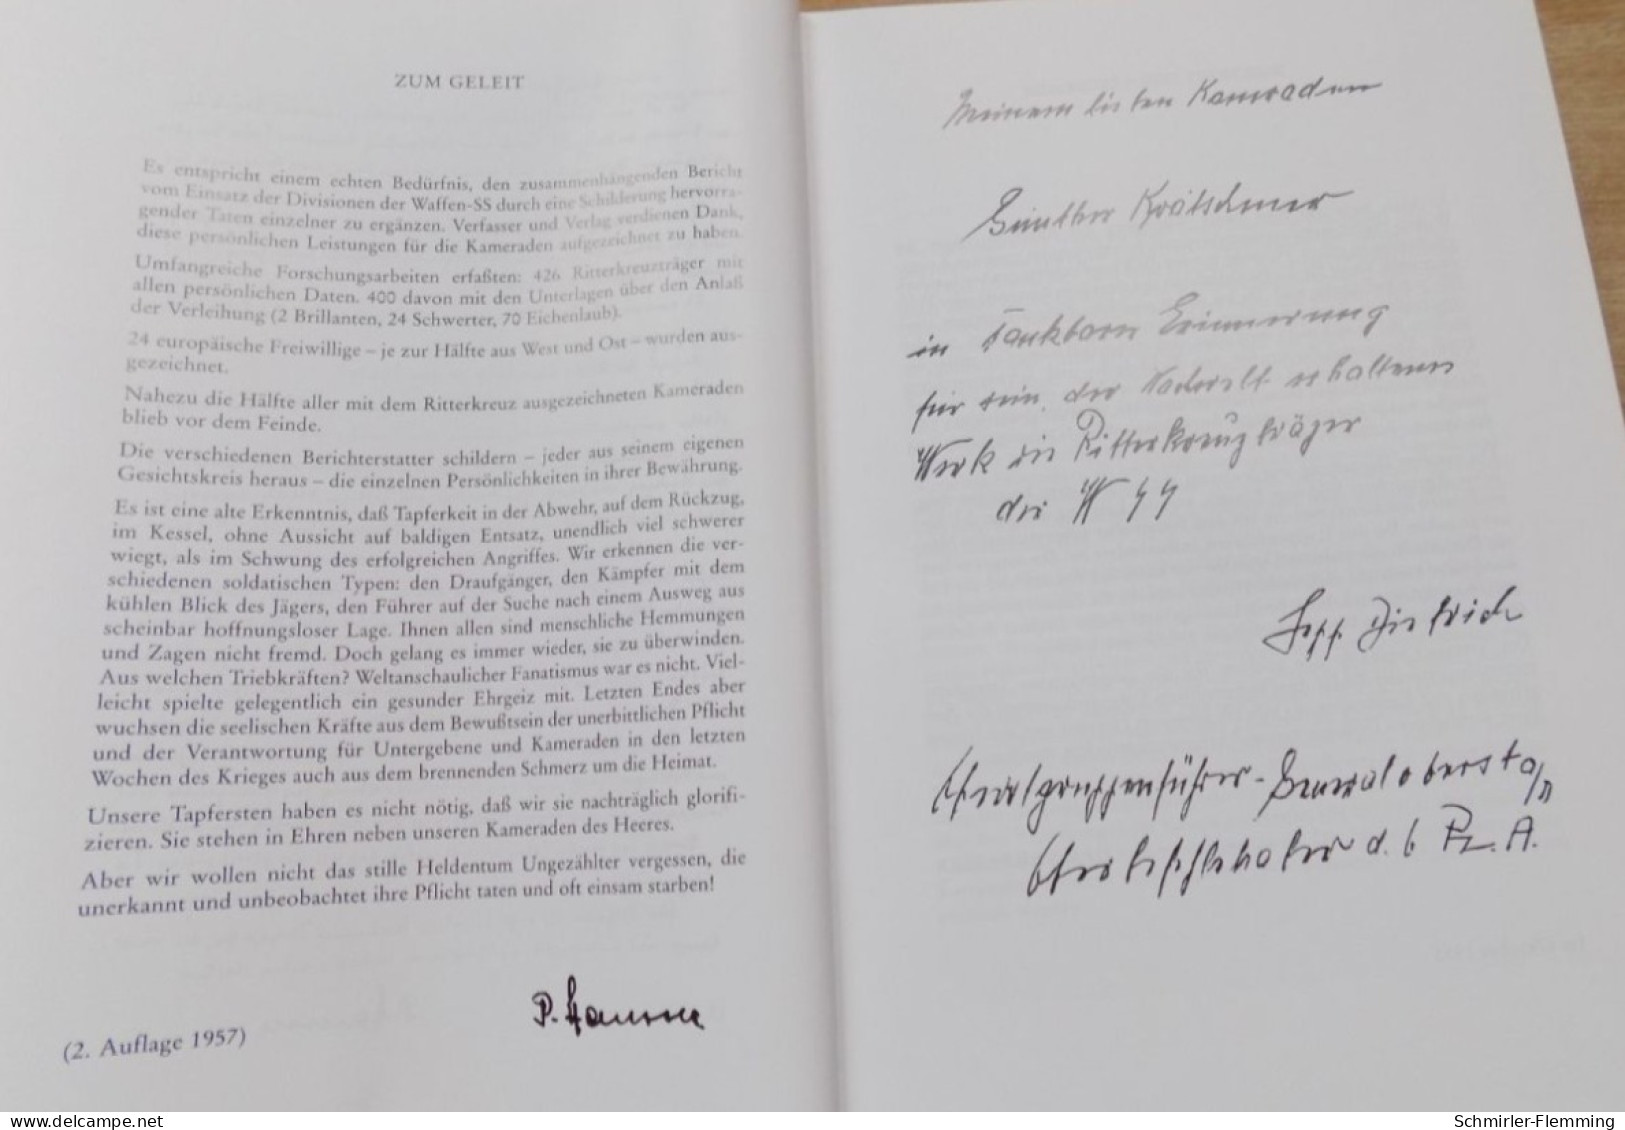 ZUM GELEIT
Es entspricht einem echten Bedürfnis, den zusammenhängenden Bericht
vom Einsatz der Divisionen der Waffen-SS durch eine Schilderung hervorra-
gender Taten einzelner zu ergänzen. Verfasser und Verlag verdienen Dank,
diese persönlichen Leistungen für die Kameraden aufgezeichnet zu haben.
Umfangreiche Forschungsarbeiten erfaßten: 426 Ritterkreuzträger mit
allen persönlichen Daten. 400 davon mit den Unterlagen über den Anlaß
der Verleihung (2 Brillanten, 24 Schwerter, 70 Eichenlaub).
24 europäische Freiwillige – je zur Hälfte aus West und Ost – wurden aus-
gezeichnet.
Nahezu die Hälfte aller mit dem Ritterkreuz ausgezeichneten Kameraden
blieb vor dem Feinde.
Die verschiedenen Berichterstatter schildern – jeder aus seinem eigenen
Gesichtskreis heraus – die einzelnen Persönlichkeiten in ihrer Bewährung.
Es ist eine alte Erkenntnis, daß Tapferkeit in der Abwehr, auf dem Rückzug,
im Kessel, ohne Aussicht auf baldigen Entsatz, unendlich viel schwerer
wiegt, als im Schwung des erfolgreichen Angriffes. Wir erkennen die ver-
schiedenen soldatischen Typen: den Draufgänger, den Kämpfer mit dem
kühlen Blick des Jägers, den Führer auf der Suche nach einem Ausweg aus
scheinbar hoffnungsloser Lage. Ihnen allen sind menschliche Hemmungen
und Zagen nicht fremd. Doch gelang es immer wieder, sie zu überwinden.
Aus welchen Triebkräften? Weltanschaulicher Fanatismus war es nicht. Viel-
leicht spielte gelegentlich ein gesunder Ehrgeiz mit. Letzten Endes aber
wuchsen die seelischen Kräfte aus dem Bewußtsein der unerbittlichen Pflicht
und der Verantwortung für Untergebene und Kameraden in den letzten
Wochen des Krieges auch aus dem brennenden Schmerz um die Heimat.
Unsere Tapfersten haben es nicht nötig, daß wir sie nachträglich glorifi-
zieren. Sie stehen in Ehren neben unseren Kameraden des Heeres.
Aber wir wollen nicht das stille Heldentum Ungezählter vergessen, die
unerkannt und unbeobachtet ihre Pflicht taten und oft einsam starben!
P. Hausser
(2. Auflage 1957)
Meinem lieben Kameraden
Günther Krätschmer
in dankbarer Erinnerung
für sein, der Nachwelt erhaltenes
Werk die Ritterkreuzträger
der W SS
Sepp Dietrich
Oberstgruppenführer - Generaloberst a/D
Oberbefehlshaber d. 6 Pz. A.
www.delcampe.net
Schmirler-Flemming